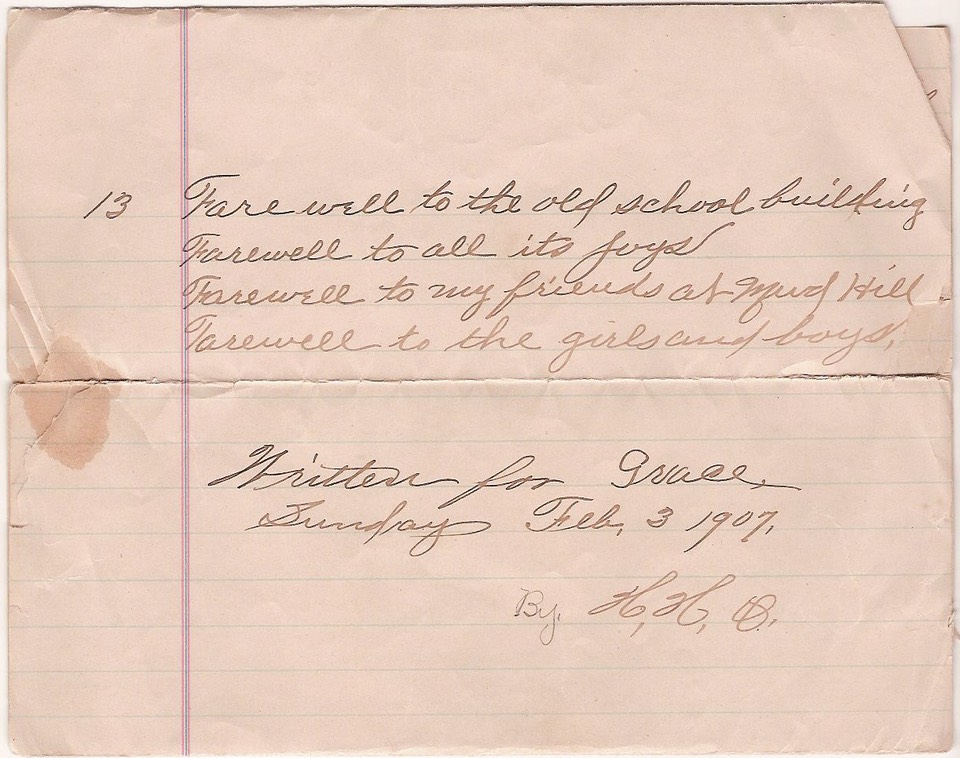 13 Fare well to the old school building
Farewell to all its joys
Farewell to my friends at Mud Hill.
Farewell to the girls and boys.
Written for Grace.
Sunday Feb. 3 1907.
By. H. H.